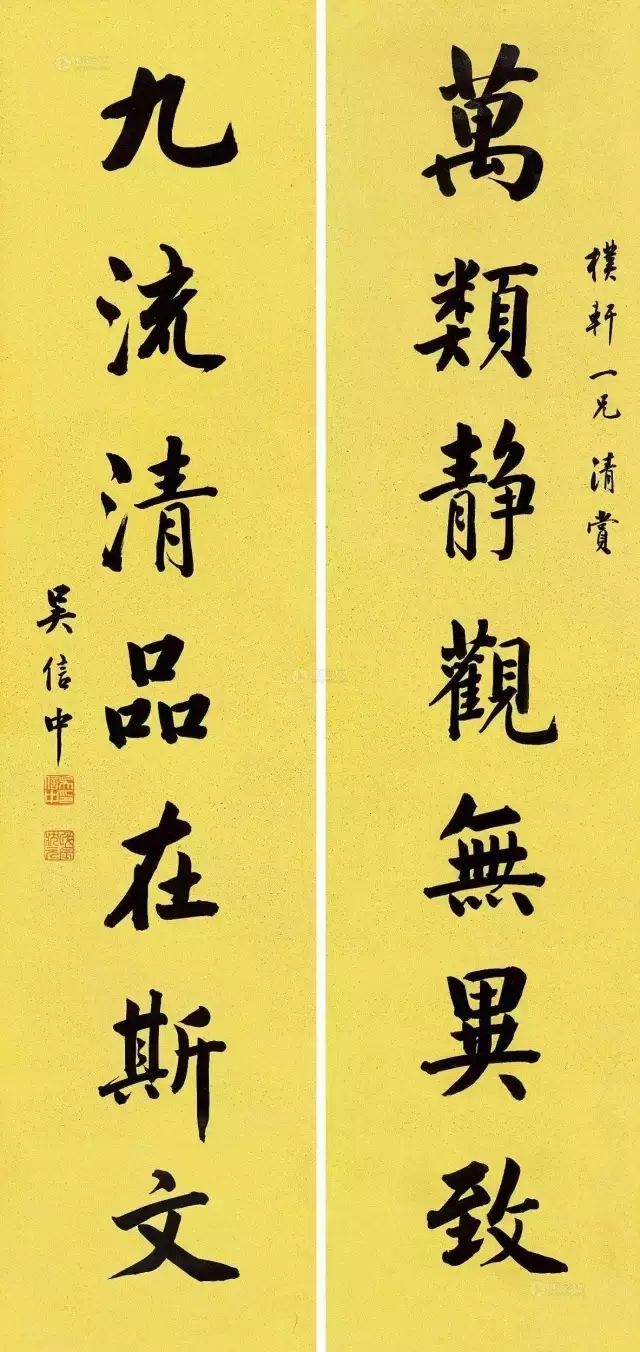 樸軒一兄清賞
萬類静觀無異致
九流清品在斯文
吳信中